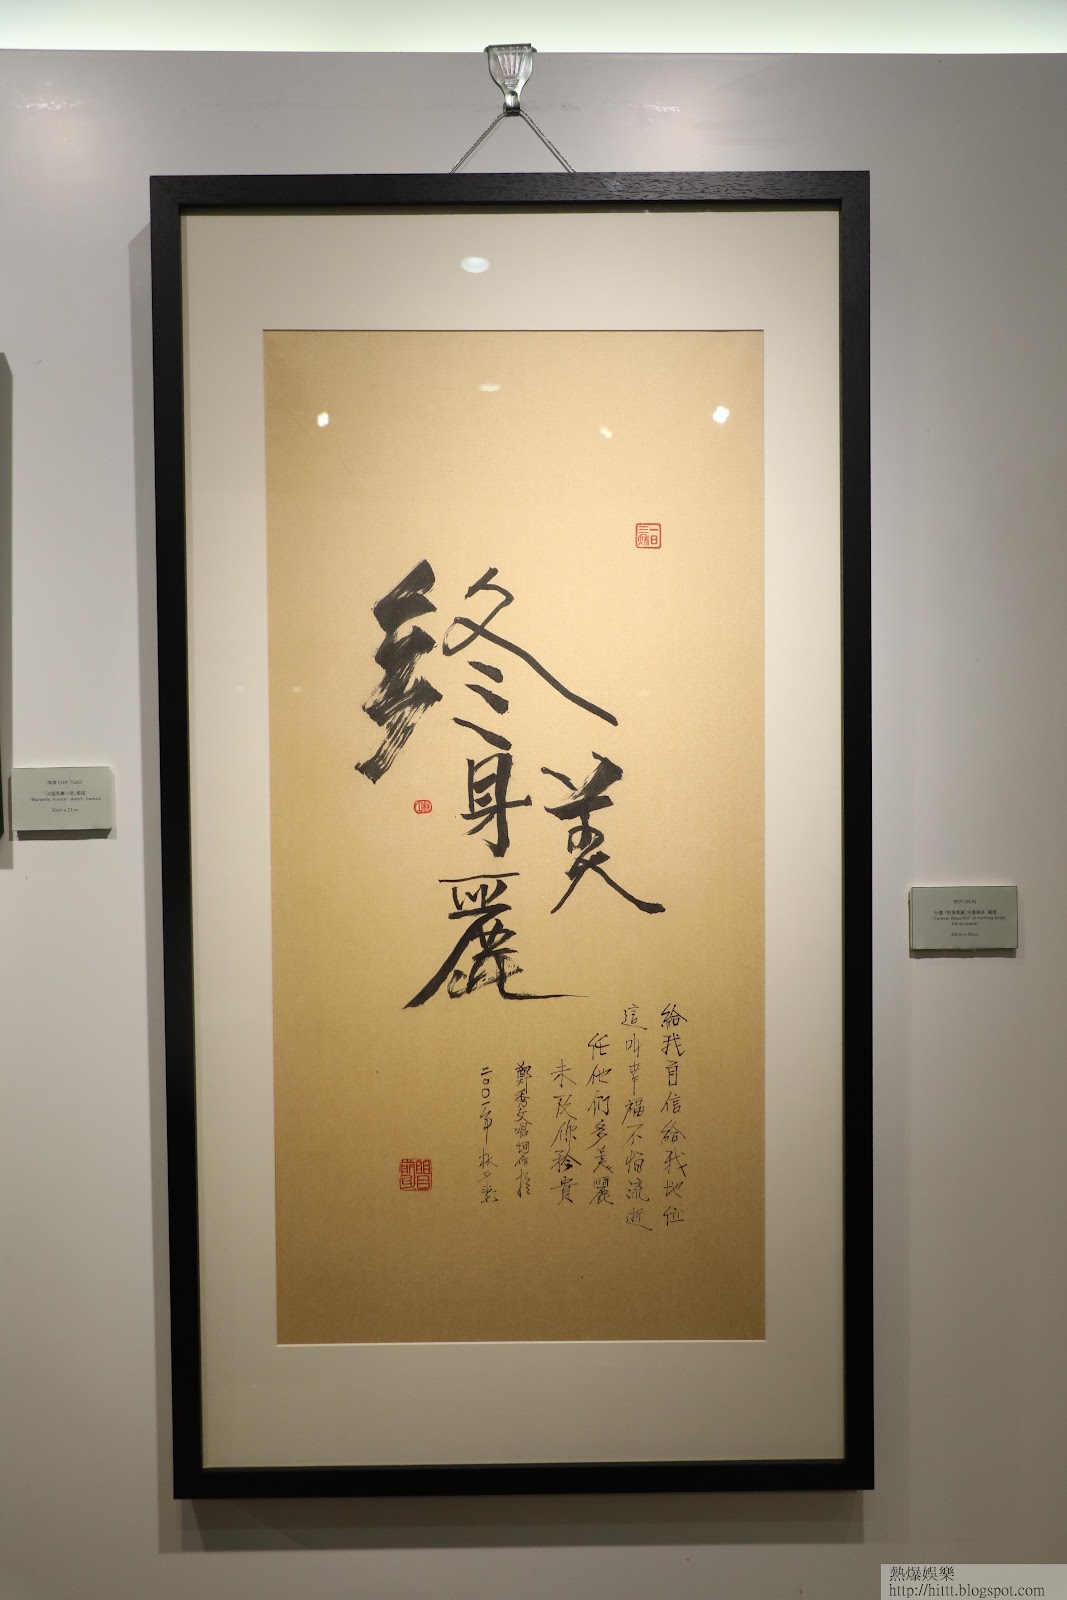 終身美麗
給我自信給我地位
這叫幸福不怕流逝
任他們多美麗
未及你矜貴
鄭秀文唱詞作於
二〇〇一年 林夕書
一日
陶傑 CHIP TSAO
"Marseille, France" sketch, framed
30cm x 21cm
林夕 LIN XI
行書「終身美麗」水墨紙本 鏡框
"Forever Beautiful" in running script
Ink on paper
熱爆娛樂
http://hittt.blogspot.com